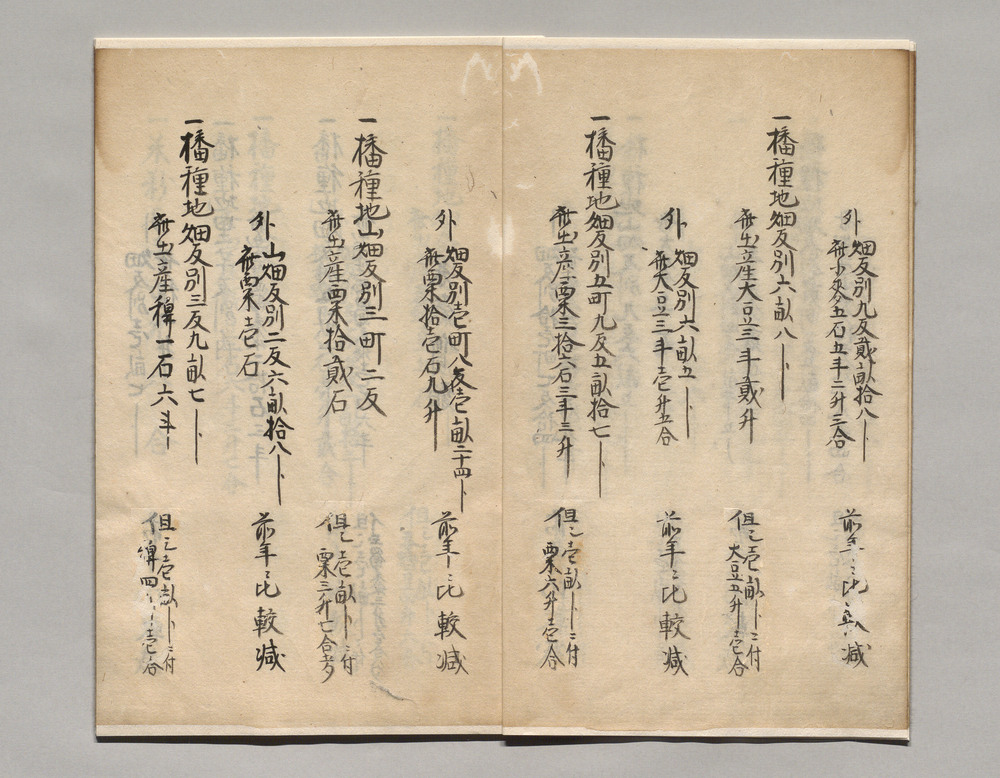 外 畑反別九反貳畝拾八ト
小麥五石五斗二升二合
前年ニ比 減
一播種地畑反別六畝八ト
産大豆三斗貳升
但シ壱畝トニ付
大豆五升壱合
外 畑反別六畝五ト
大豆三斗壱升五合
前年ニ比較減
一播種地畑反別五町九反五畝拾七ト
産粟三拾六石三斗三升
但シ壱畝トニ付
粟六升壱合
外 畑反別壱町八反壱畝二十四ト
粟拾壱石九升
前年ニ比較減
一播種地山畑反別三町二反
産粟拾貳石
但シ壱畝トニ付
粟三升七合
外 山畑反別二反六畝拾八ト
粟壱石
前年ニ比較減
一播種地畑反別三反九畝七ト
産稗一石六斗
但シ壱畝トニ付
稗四 壱合